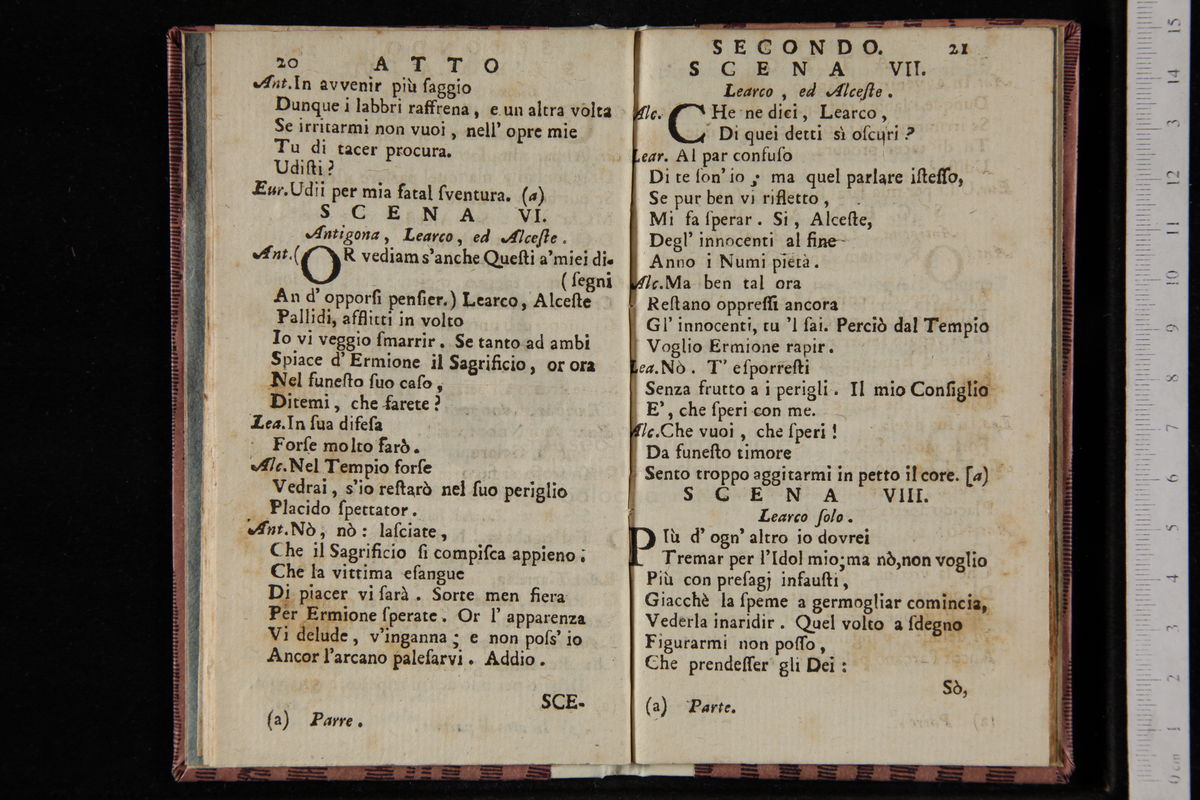 20 ATTO
Ant.In avvenir più ſaggio
Dunque i labbri raffrena, e un altra vòlta
Se irritarmi non vuoi, nell' opre mie
Tu di tacer procura.
Udiſti?
Eur.Udii per mia fatal ſventura. (a)
SCENA VI.
Antigona, Learco, ed Alceſte.
Ant.(OR vediam s'anche Queſti a'miei di-
(ſegni
An d' opporſi penſier.) Learco, Alceſte
Pallidi, afflitti in volto
Io vi veggio ſmarrir. Se tanto ad ambi
Spiace d' Ermione il Sagrificio, or ora
Nel funeſto ſuo caſo,
Ditemi, che farete?
Lea.In ſua difeſa
Forſe molto farò.
Alc.Nel Tempio forſe
Vedrai, s'io reſtarò nel ſuo periglio
Placido ſpettator.
Ant.Nò, nò: laſciate,
Che il Sagrificio ſi compiſca appieno;
Che la vittima eſangue
Di piacer vi ſarà. Sorte men fiera
Per Ermione ſperate. Or l' apparenza
Vi delude, v'inganna; e non poſs' io
Ancor l'arcano paleſarvi. Addio.
SCE-
(a) Parre.
SECONDO. 21
SCENA VII.
Learco, ed Alceſte.
Alc. CHe ne dici, Learco,
Di quei detti sì oſcuri?
Lear. Al par confuſo
Di te ſon' io; ma quel parlare iſteſſo,
Se pur ben vi rifletto,
Mi fa ſperar. Si, Alceſte,
Degl' innocenti al fine
Anno i Numi pietà.
Alc.Ma ben tal ora
Reſtano oppreſſi ancora
Gl' innocenti, tu 'l ſai. Perciò dal Tempio
Voglio Ermione rapir.
Lea.Nò. T' eſporreſti
Senza frutto a i perigli. Il mio Conſiglio
E', che ſperi con me.
Alc.Che vuoi, che ſperi!
Da funeſto timore
Sento troppo aggitarmi in petto il core. [a)
SCENA VIII.
Learco ſolo.
PIù d' ogn' altro io dovrei
Tremar per l'Idol mio;ma nò,non voglio
Più con preſagj infauſti,
Giacchè la ſpeme a germogliar comincia,
Vederla inaridir. Quel volto a ſdegno
Figurarmi non poſſo,
Che prendeſſer gli Dei:
Sò,
(a) Parte.
0 cm 1 2 3 4 5 6 7 8 9 10 11 12 13 14 15